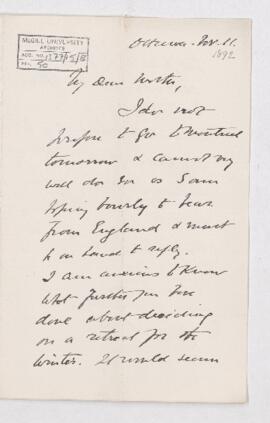 McGILL UNIVERSITY
ARCHIVES
ACC. NO. 1277/5/15
REF. 50
Ottawa. Nov. 11.
1892
My dear Mother,
I do not
propose to go to Montreal
tomorrow & cannot very
well do so as I am
hoping hourly to hear
from England & must
be on hand to reply.
I am anxious to know
what further you have
done about deciding
on a retreat for the
Winter. It would seem